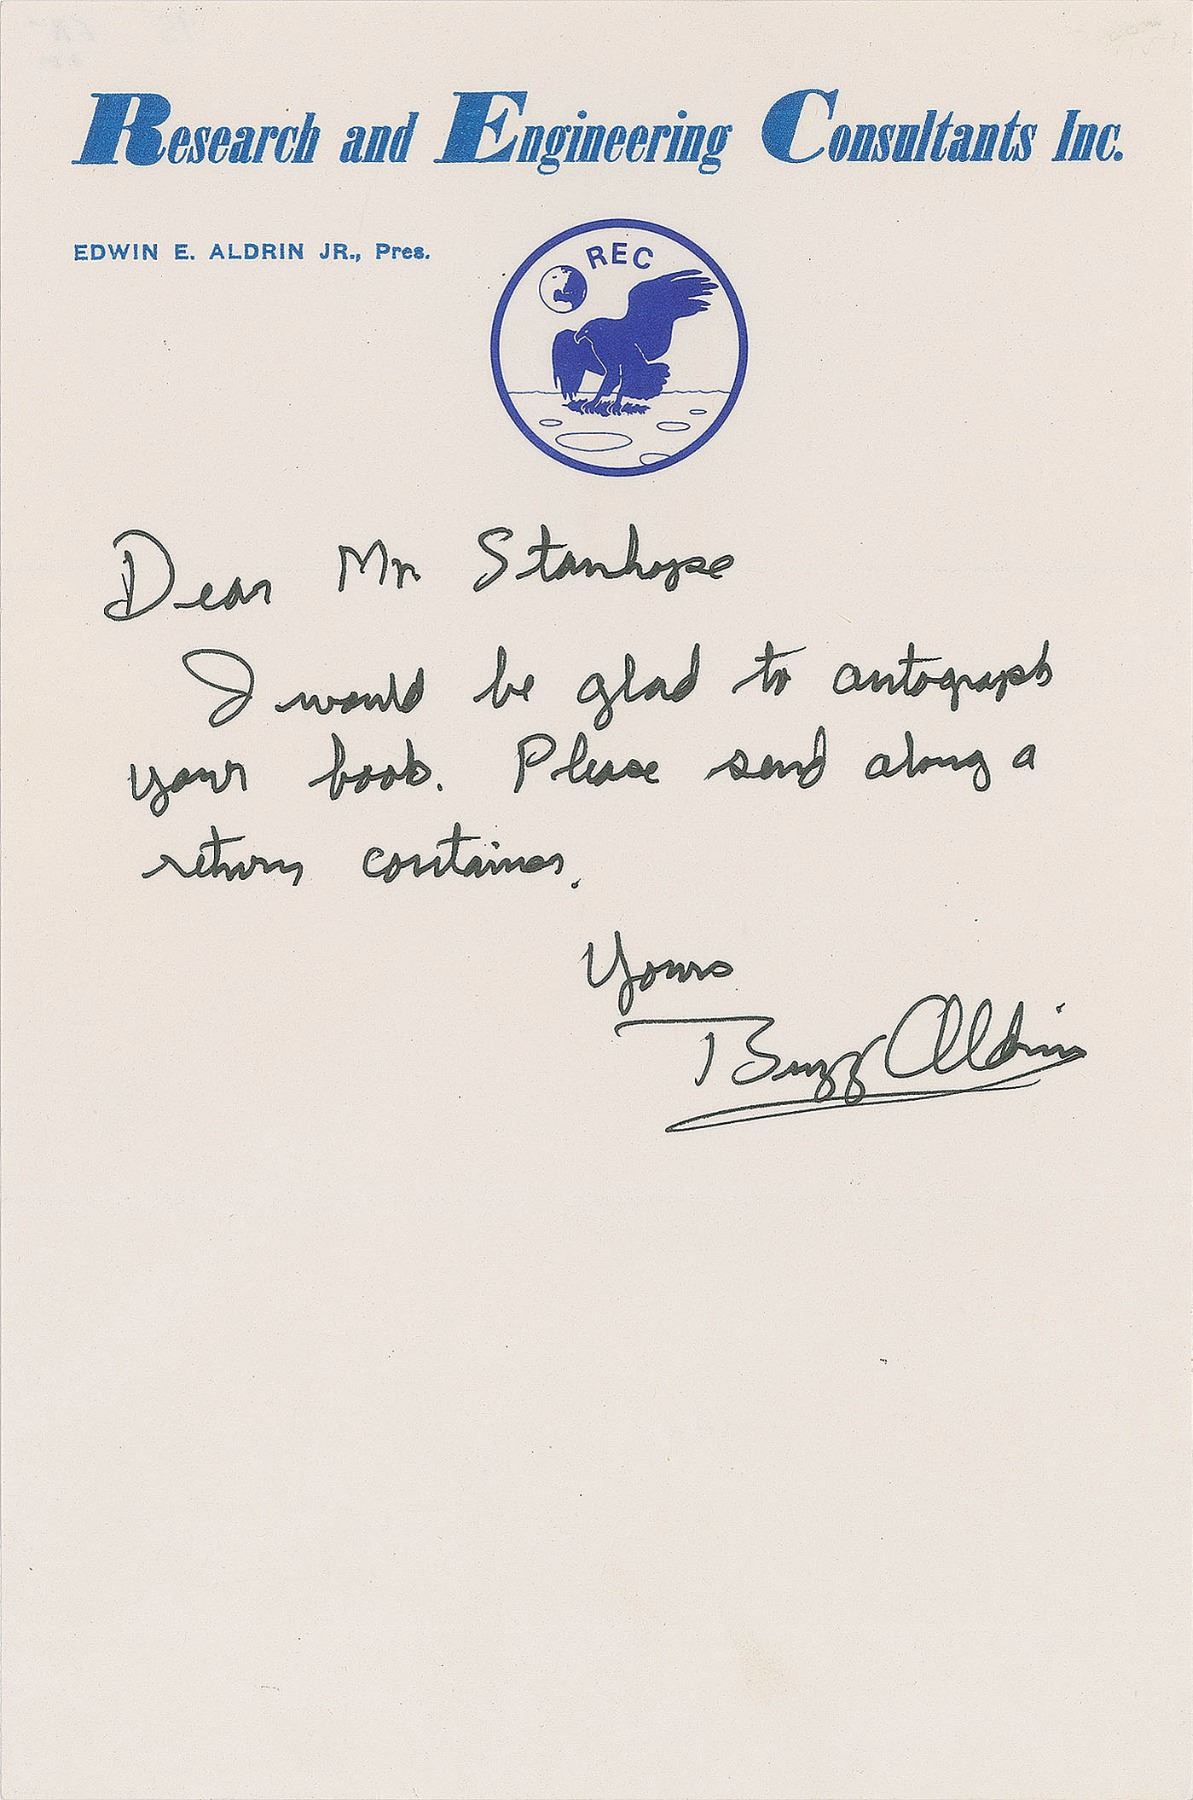 Research and Engineering Consultants Inc.
EDWIN E. ALDRIN JR., Pres.
REC
Dear Mr Stanhope
I would be glad to autograph
your book. Please send along a
return container.
Yours
Buzz Aldrin